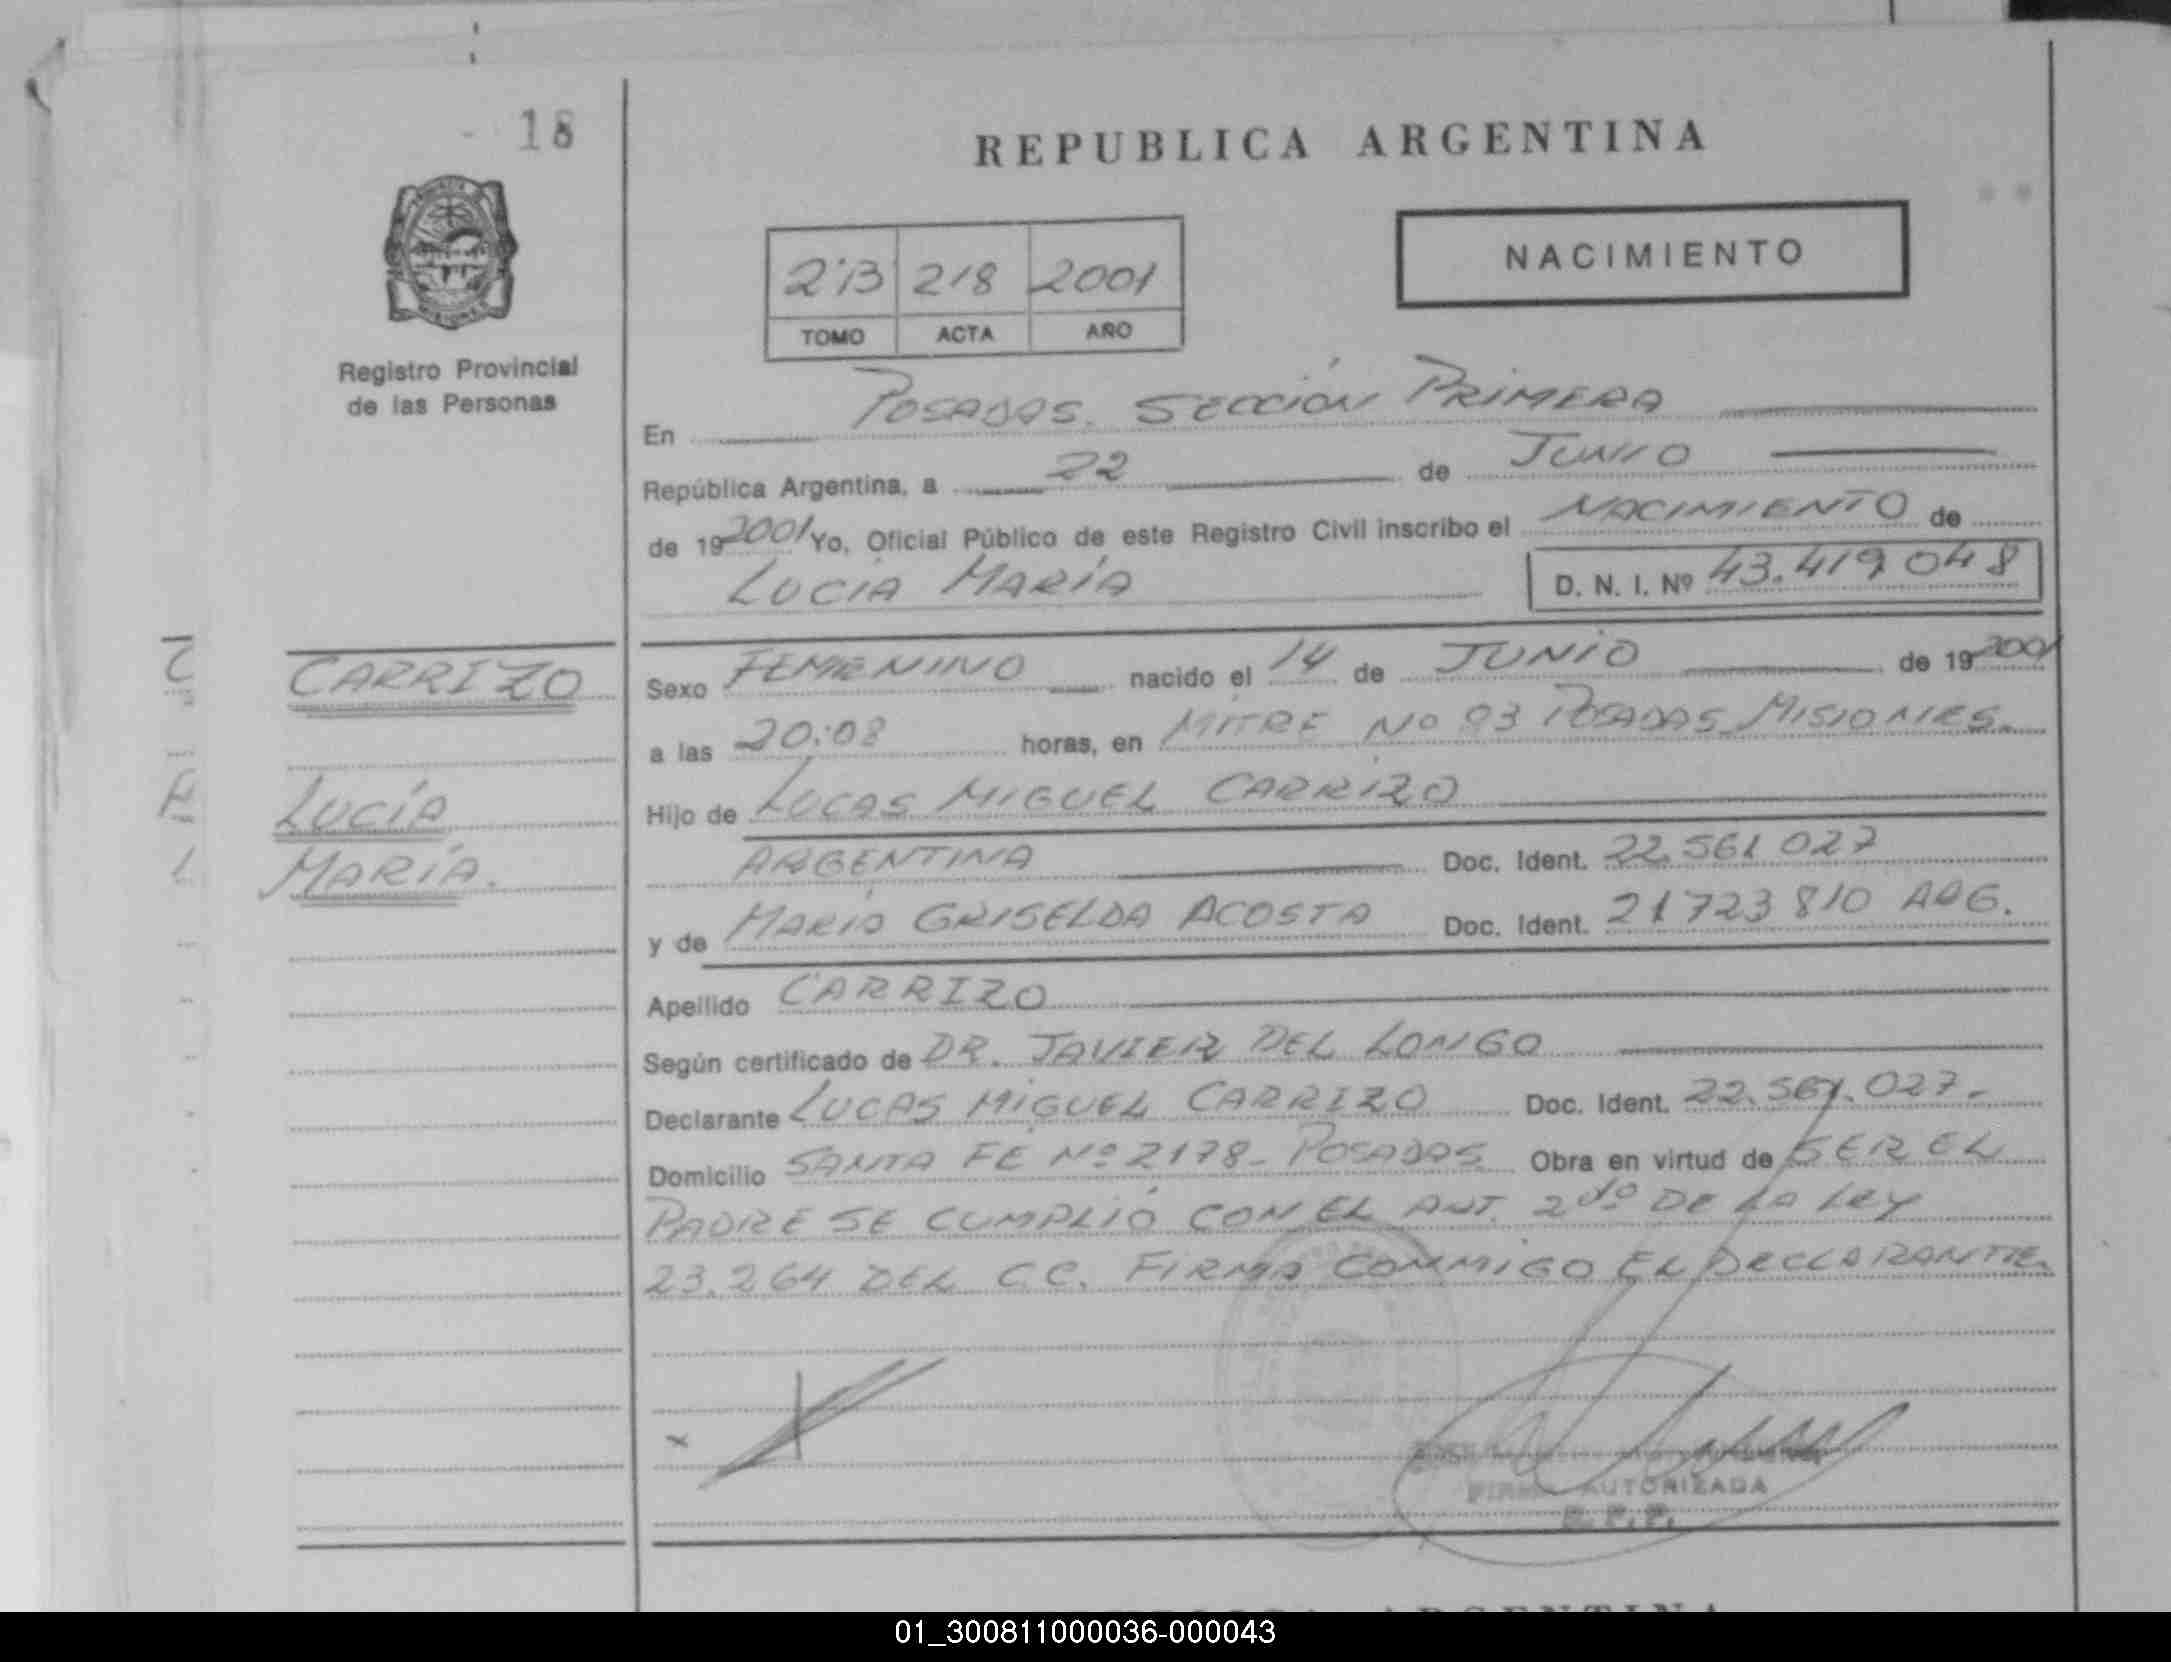 18
REPUBLICA ARGENTINA
NACIMIENTO
2°B 218 2001
TOMO ACTA AÑO
Registro Provincial
de las Personas
En POSADAS. SECCIÓN PRIMERA
República Argentina, a 22 de JUNIO
de 19 2001 Yo, Oficial Público de este Registro Civil inscribo el NACIMIENTO de
LUCÍA MARÍA D. N. I. Nº 43.419 048
CARRIZO
LUCÍA
MARÍA.
Sexo FEMENINO nacido el 14 de JUNIO de 19 2001
a las 20:08 horas, en MITRE Nº 93 POSADAS MISIONES.
Hijo de LUCAS MIGUEL CARRIZO
ARGENTINA Doc. Ident. 22.561 027
y de MARÍA GRISELDA ACOSTA Doc. Ident. 21 723 810 ARG.
Apellido CARRIZO
Según certificado de DR. JAVIER DEL LONGO
Declarante LUCAS MIGUEL CARRIZO Doc. Ident. 22.561.027.
Domicilio SANTA FE Nº 2178 - POSADAS Obra en virtud de SER EL
PADRE SE CUMPLIÓ CON EL ART. 2do DE LA LEY
23.264 DEL C.C. FIRMA CONMIGO EL DECLARANTE.
x
FIRMA AUTORIZADA
R. P. P.
01_300811000036-000043